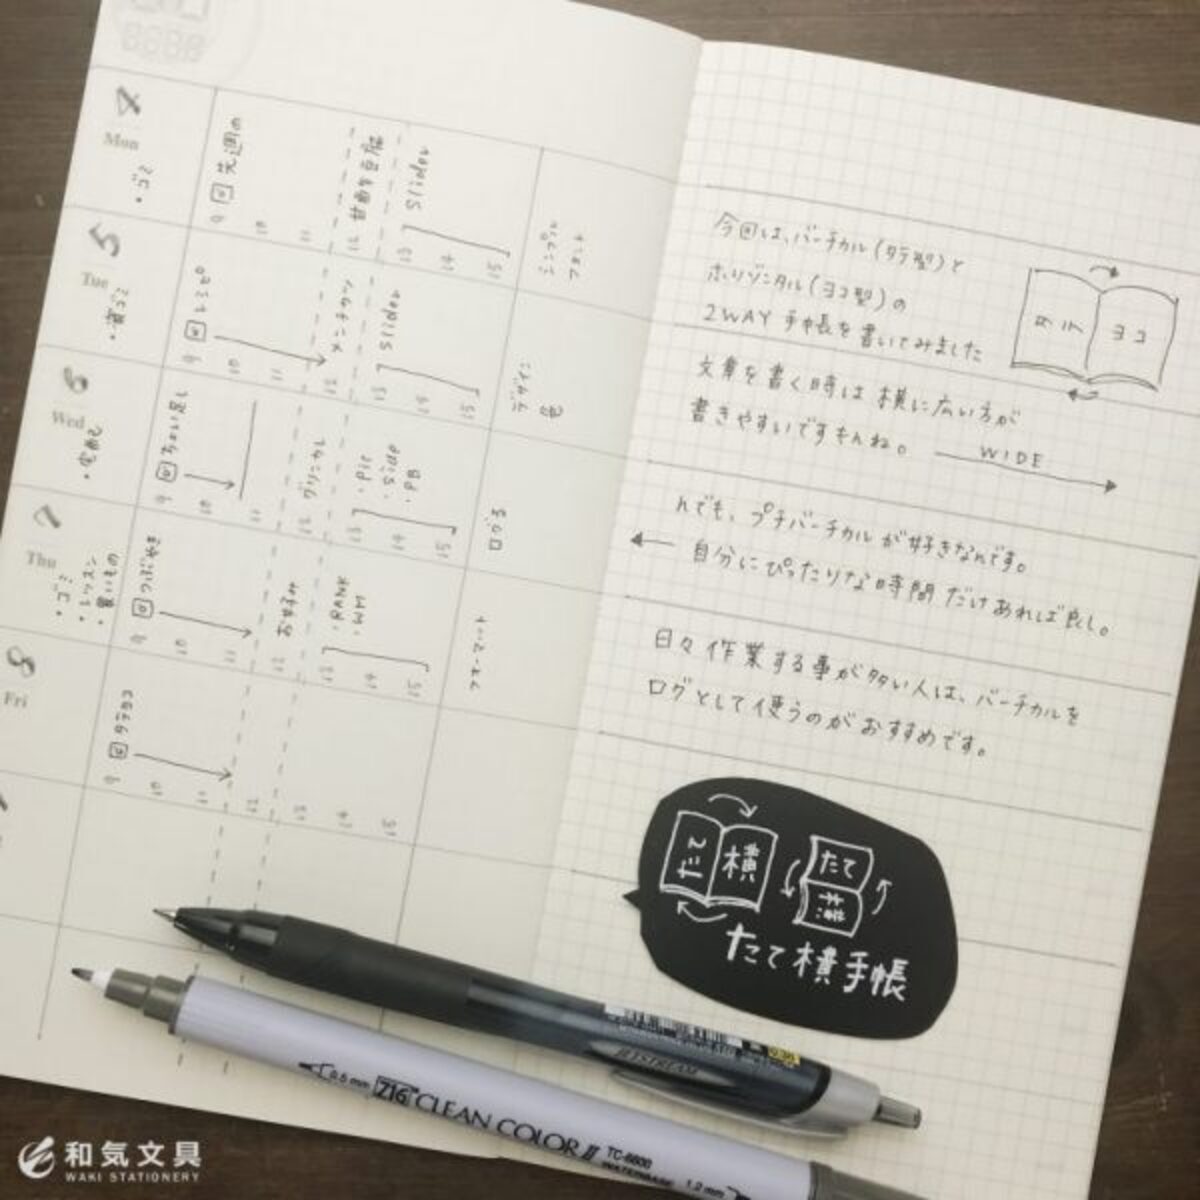 4
Mon
・ゴミ
9 回 先週の
10
11
12 甘酢豆腐
13 Slider
14
15
シンプル
フォント
5
Tue
・資ゴミ
9
10
11
12 メンチカツ
13 Slider
14
15
デザイン
色
6
Wed
9 回 ちょい足し
10
11
12
13 ・pic
・side
・PB
14
15
ログ
7
Thu
・ゴミ
・レッスン
・買いもの
9 回 つぶやき
10
11
12 お好み
13 ・RANK
・WM
14
15
フォーマット
8
Fri
9 回 タテヨコ
10
11
12
13
14
15
今回は、バーチカル(タテ型)と
ホリゾンタル(ヨコ型)の
2WAY 手帳を書いてみました
タテ ヨコ
文章を書く時は 横に広い方が
書きやすいですもんね。 WIDE
んでも、プチバーチカルが好きなんです。
自分にぴったりな時間だけあれば良し。
日々作業する事が多い人は、バーチカルを
ログとして使うのがおすすめです。
たて 横
たて
横
たて横手帳
JETSTREAM
0.5 mm ZIG CLEAN COLOR II TC-6600
WATERBASE 1.2 mm
和気文具
WAKI STATIONERY